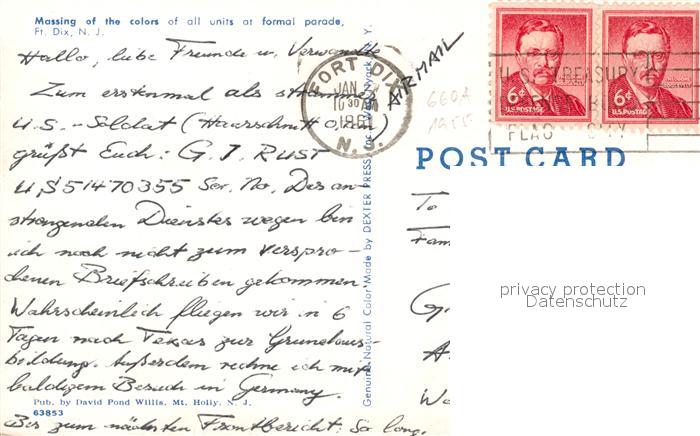 Massing of the colors of all units at formal parade,
Ft. Dix, N. J.
Hallo, liebe Freunde u. Verwandte
Zum erstenmal als strammer
U.S.-Soldat (Haarschnitt 0, nix)
grüßt Euch: G.I. RUST
US51470355 Ser. No. Des an-
strengenden Dienstes wegen bin
ich noch nicht zum verspro-
chenen Briefschreiben gekommen.
Wahrscheinlich fliegen wir in 6
Tagen nach Texas zur Grundaus-
bildung. Außerdem rechne ich mit
baldigem Besuch in Germany.
Pub. by David Pond Willis, Mt. Holly, N. J.
63853
Bis zum nächsten Frontbericht: So long.
Genuine Natural Color Made by DEXTER PRESS, Inc. West Nyack, N. Y.
FORT DIX
JAN
10 30
1961
N. J.
AIRMAIL
660A
1955
6¢
U.S. POSTAGE
6¢
U.S. POSTAGE
U.S. TREASURY
FLAG DAY
POST CARD
To
Fam
privacy protection
Datenschutz
G
A
We